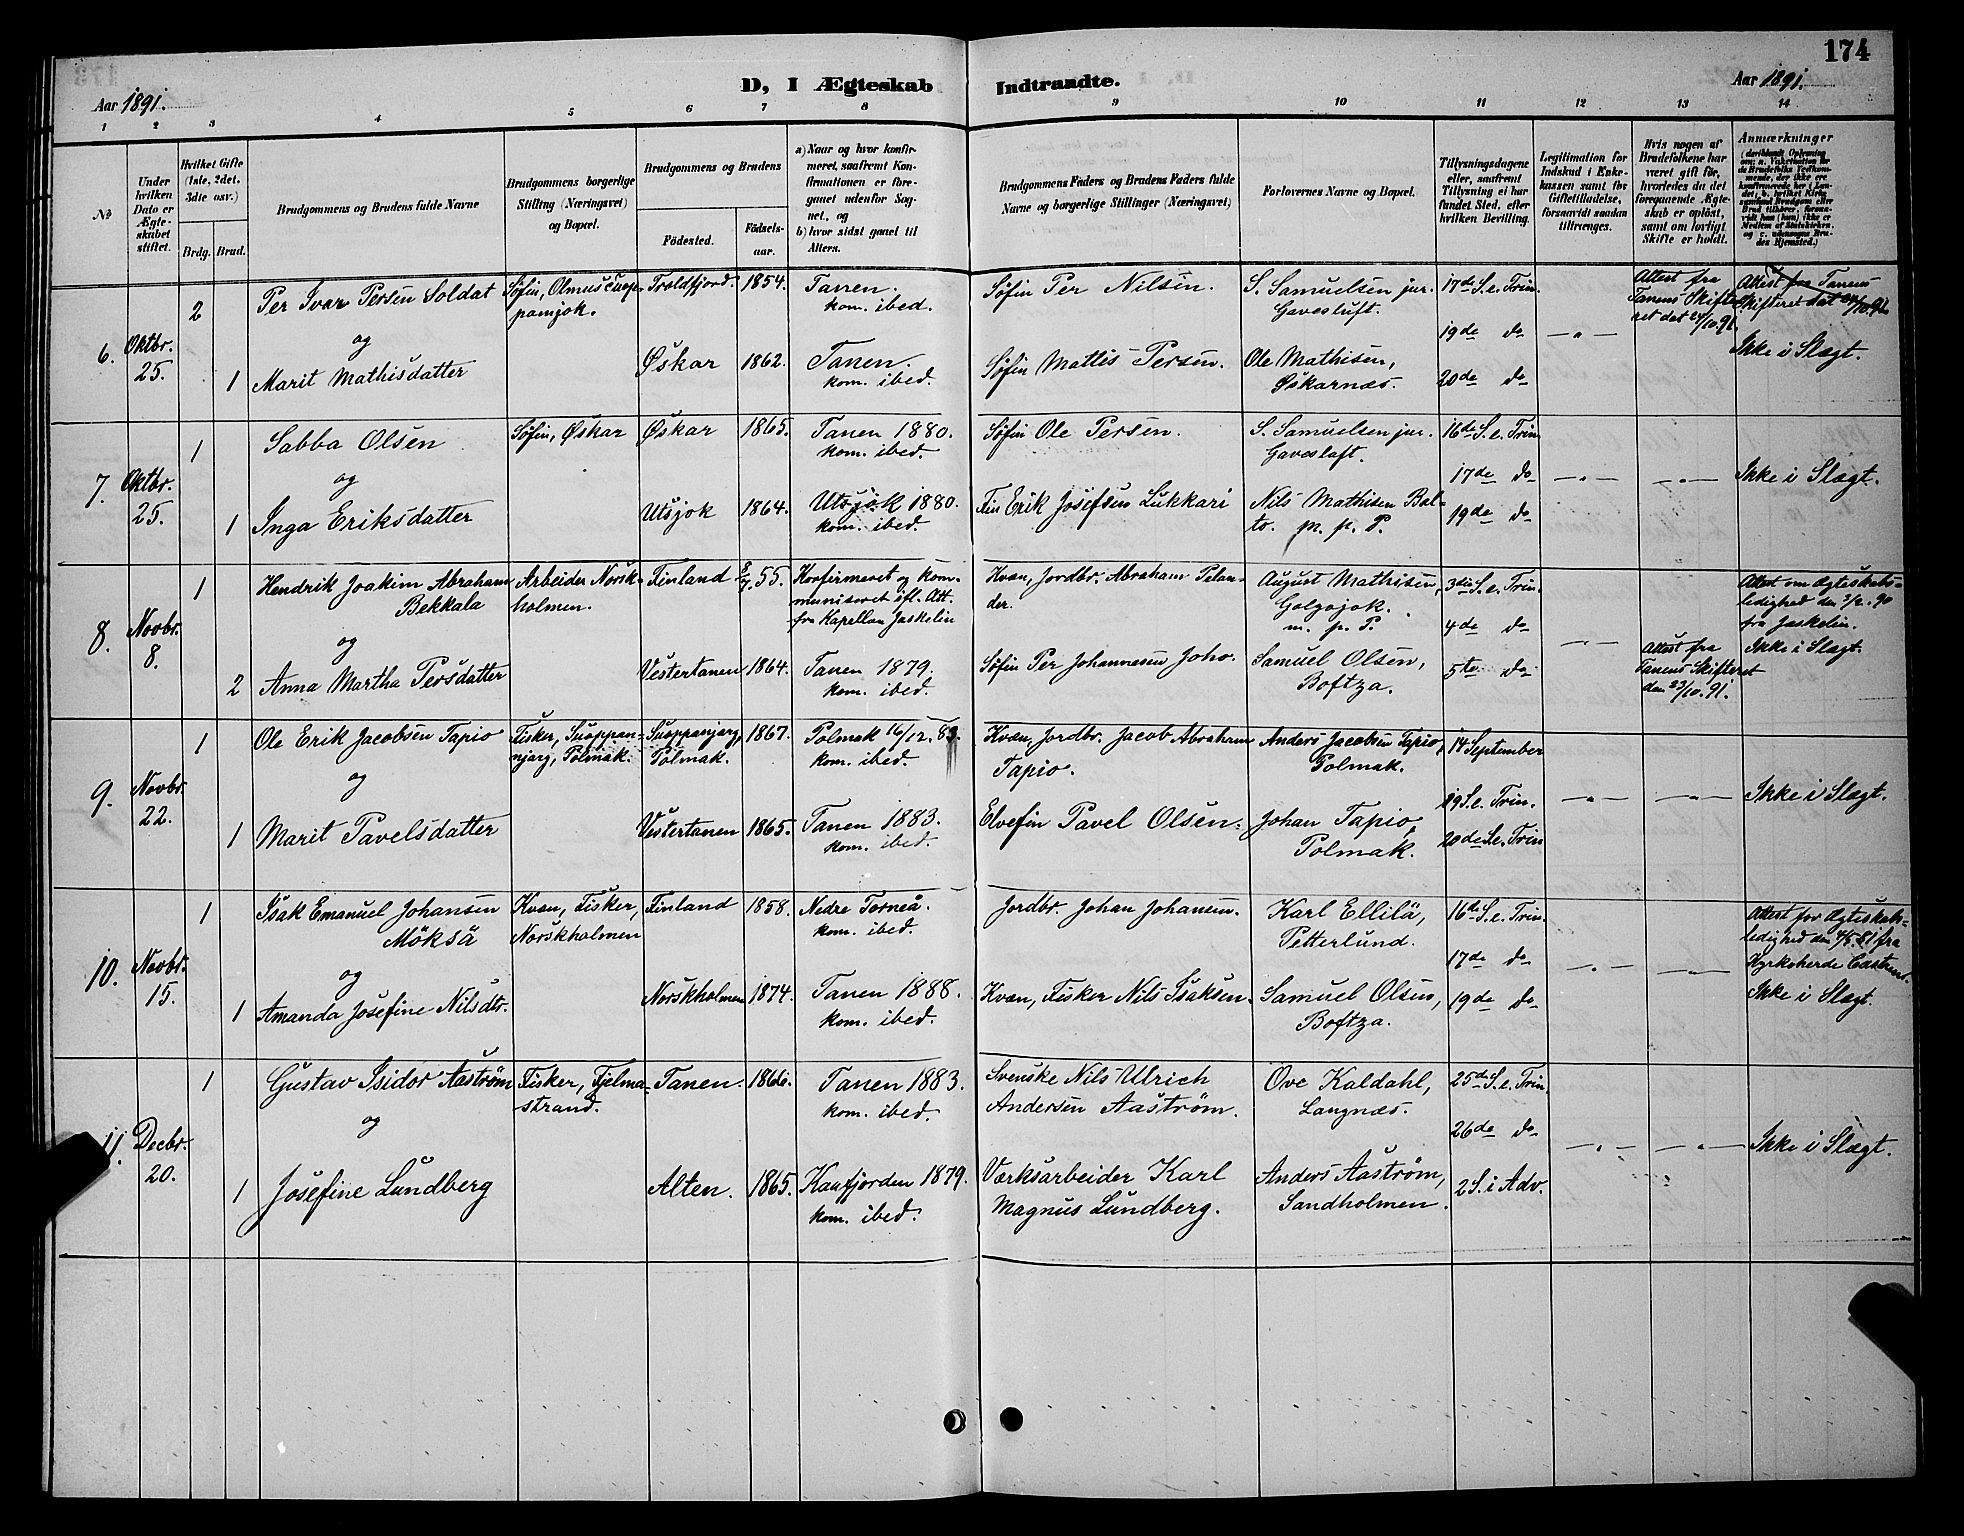 174
D, I Ægteskab Indtraadte.
Aar 1891.
Aar 1891.
1 2 3 4 5 6 7 8 9 10 11 12 13 14
No
Under hvilken Dato er Ægteskabet stiftet.
Hvilket Gifte (1ste, 2det, 3die osv.)
Brdg. Brud.
Brudgommens og Brudens fulde Navne
Brudgommens borgerlige Stilling (Næringsvei) og Bopæl.
Brudgommens og Brudens
Fødested.
Fødselsaar.
a) Naar og hvor konfirmeret, saafremt Konfirmationen er foregaaet udenfor Sognet, og
b) hvor sidst gaaet til Alters.
Brudgommens Faders og Brudens Faders fulde Navne og borgerlige Stillinger (Næringsvei)
Forlovernes Navne og Bopæl.
Tillysningsdagene eller, saafremt Tillysning ei har fundet Sted, efter hvilken Bevilling.
Legitimation for Indskud i Enkekassen samt for Giftetilladelse, forsaavidt saadan tiltrænges.
Hvis nogen af Brudefolkene har været gift før, hvorledes da det foregaaende Ægteskab er opløst, samt om lovligt Skifte er holdt.
Anmærkninger
6. Oktbr. 25.
2
Per Ivar Persen Soldat
og
1 Marit Mathisdatter
Søfin, Olmus
pamjok.
Troldfjord. 1854.
Øskar 1862.
Tanen.
kom. ibed.
Tanen.
kom. ibed.
Søfin Per Nilsen.
Søfin Mattis Persen.
S. Samuelsen jur.
Gavesluft.
Ole Mathisen,
Øskarnæs.
17de S. e. Trin.
19de do
20de do
— " —
Attest fra
Tanens Skifte
ret dat 24/10.91.
Attest fra Tanens
Skifteret dat 24/10.91.
Ikke i Slægt.
7. Oktbr. 25.
1
Sabba Olsen
og
1 Inga Eriksdatter
Søfin, Øskar
Øskar 1865.
Utsjok 1864.
Tanen 1880.
kom. ibed.
Utsjok 1880.
kom. ibed.
Søfin Ole Persen.
Fin Erik Josefsen Lukkari
S. Samuelsen jur.
Gavesluft.
Nils Mathisen Bal-
to. m. p. P.
16de S. e. Trin.
17de do
19de do
— " —
— " —
Ikke i Slægt.
8. Novbr. 8.
1
Hendrik Joakim Abraham
Bekkala
og
2 Anna Martha Persdatter
Arbeider Norsk-
holmen.
Finland 8/7. 55.
Vestertanen 1864.
Konfirmeret og kom-
muniseret ifl. Att.
fra Kapellan Jaskelin
Tanen 1879.
kom. ibed.
Kvæn, Jordbr. Abraham Pelan-
der.
Søfin Per Johannesen Joho.
August Mathisen,
Golgojok.
m. p. P.
Samuel Olsen,
Boftza.
3die S. e. Trin.
4de do
5te do
— " —
Attest fra
Tanens Skifteret
den 23/10. 91.
Attest om Ægteskabs-
ledighed den 3/2. 90
fra Jaskelin.
Ikke i Slægt.
9. Novbr. 22.
1
Ole Erik Jacobsen Tapio
og
1 Marit Pavelsdatter
Fisker, Suoppan-
njarg, Polmak.
Suoppanjarg,
Polmak. 1867.
Vestertanen 1865.
Polmak 16/12. 83.
kom. ibed.
Tanen 1883.
kom. ibed.
Kvæn, Jordbr. Jacob Abraham
Tapio.
Elvefin Pavel Olsen.
Anders Jacobsen Tapio,
Polmak.
Johan Tapio,
Polmak.
14 September
19 S. e. Trin.
20de S. e. Trin
— " —
— " —
Ikke i Slægt.
10. Novbr. 15.
1
Isak Emanuel Johansen
Möksä
og
1 Amanda Josefine Nilsdtr.
Kvæn, Fisker,
Norskholmen
Finland 1858.
Norskholmen 1874.
Nedre Torneå.
kom. ibed.
Tanen 1888.
kom. ibed.
Jordbr. Johan Johansen.
Kvæn, Fisker Nils Isaksen.
Karl Ellilä,
Petterlund.
Samuel Olsen,
Boftza.
16de S. e. Trin.
17de do
19de do
— " —
— " —
Attest for Ægteskabs-
ledighed den 4/5. 81 fra
Kyrkoherde Castren.
Ikke i Slægt.
11. Decbr. 20.
1
Gustav Isidor Aaström
og
1 Josefine Lundberg
Fisker, Fjelma-
strand.
Tanen. 1866.
Alten. 1865.
Tanen 1883.
kom. ibed.
Kaafjorden 1879.
kom. ibed.
Svenske Nils Ulrich
Andersen Aaström.
Værksarbeider Karl
Magnus Lundberg.
Ove Kaldahl,
Langnæs.
Anders Aaström,
Sandholmen.
25de S. e. Trin.
26de do
2 S. i Adv.
— " —
— " —
Ikke i Slægt.